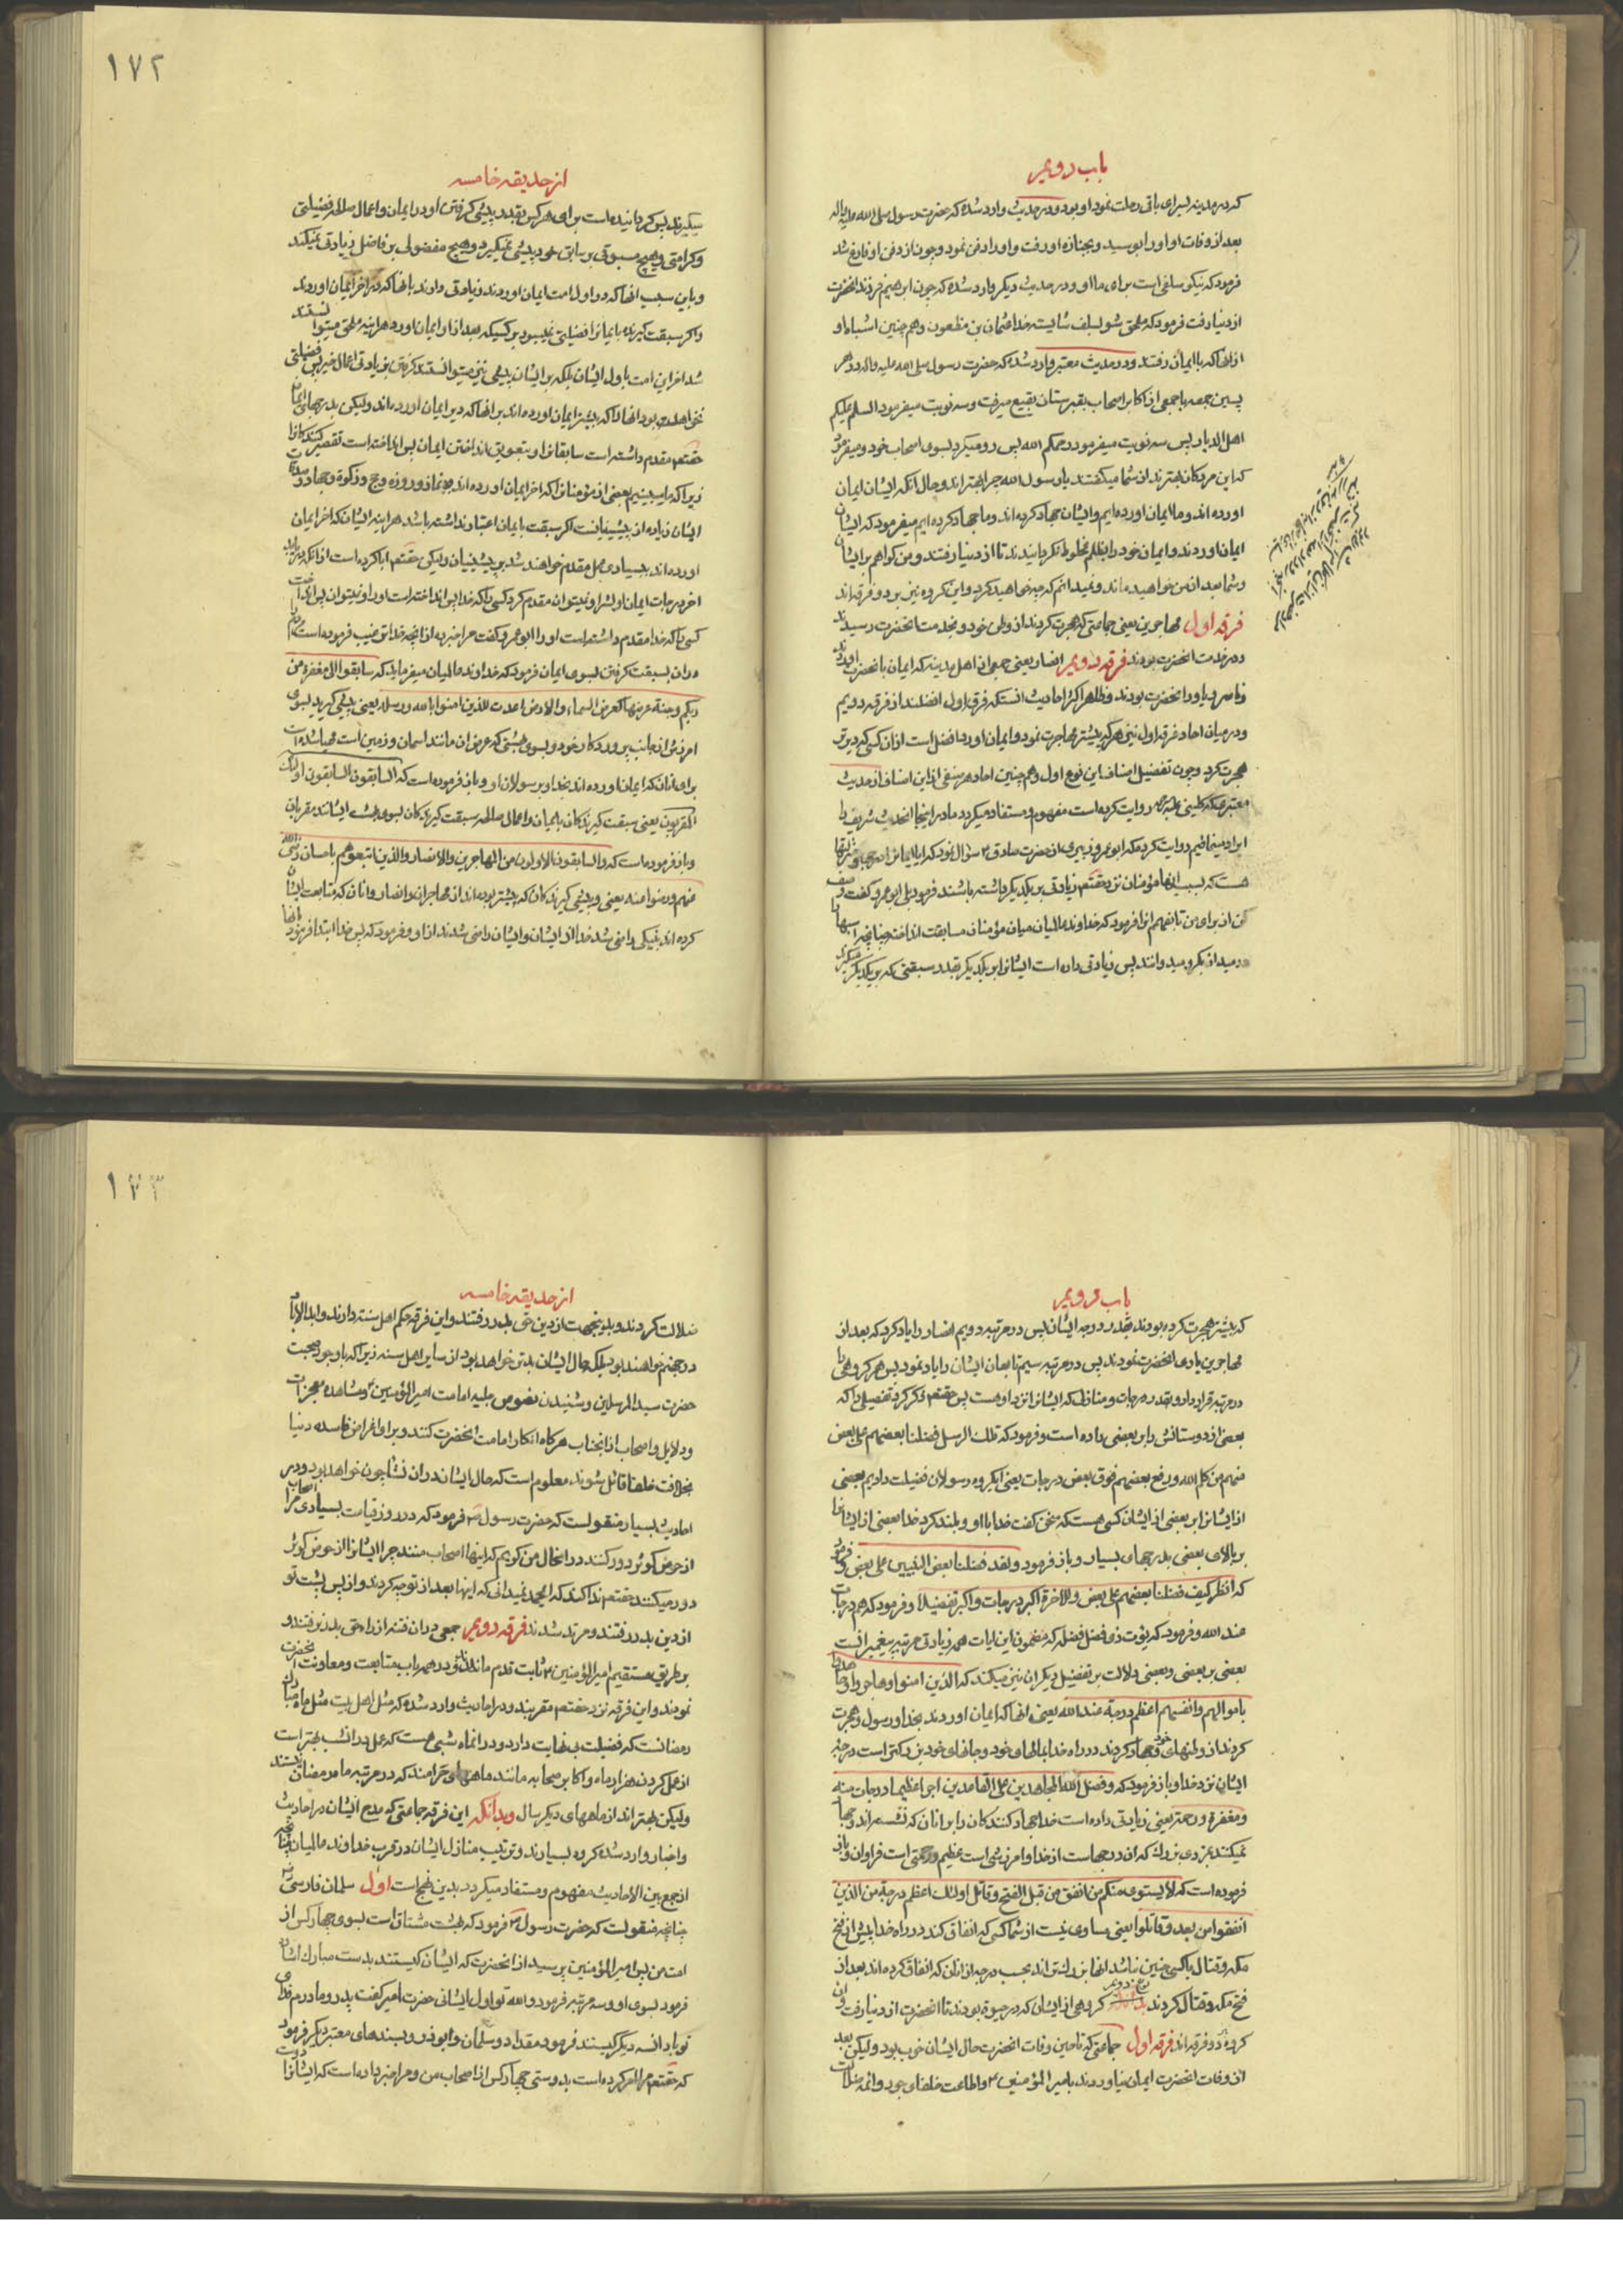 باب دویم
که در مدینه بسرای باقی رحلت نمود او بود و در حدیث وارد شده که حضرت رسول صلی الله علیه واله
بعد از وفات او او را بوسید و بجنازه او رفت و او را دفن نمود و چون از دفن او فارغ شد
فرمود که نیکو سلفی است برای ما او و در حدیث دیگر وارد شده که چون ابرهیم فرزند انحضرت
از دنیا رفت فرمود که ملحق شو بسلف شایسته خدا عثمان بن مظعون و هم چنین اشباه او
از انها که با ایمان رفتند و در حدیث معتبر وارد شده که حضرت رسول صلی الله علیه واله در هر
پسین جمعه با جمعی از اکابر اصحاب بقبرستان بقیع میرفت و سه نوبت میفرمود السلم علیکم
اهل الدیار پس سه نوبت میفرمود رحمکم الله پس رو میکرد بسوی اصحاب خود و میفرمود
که این مردکان بهترند از شما میکفتند یا رسول الله چرا بهترند و حال انکه ایشان ایمان
اورده اند و ما ایمان اورده ایم و ایشان جهاد کرده اند و ما جهاد کرده ایم میفرمود که ایشان
ایمان اوردند و ایمان خود را بظلم مخلوط نکردانیدند تا از دنیا رفتند و من کواهم بر ایشان
و شما بعد از من خواهید ماند و نمیدانم که چه خواهید کرد و این کروه نیز بر دو فرقه اند
فرقه اول مهاجرین یعنی جماعتی که هجرت کردند از وطن خود و بخدمت انحضرت رسیدند
و در خدمت انحضرت بودند فرقه دویم انصار یعنی جمعی از اهل مدینه که ایمان بانحضرت اوردند
و ناصر و یاور انحضرت بودند و ظاهر اکثر احادیث انستکه فرقه اول افضلند از فرقه دویم
و در میان احاد فرقه اول نیز هر که پیشتر مهاجرت نمود و ایمان اورد افضل است از ان کسی که دیرتر
هجرت کرد و چون تفضیل اصناف این نوع اول و هم چنین احاد هر صنفی از این اصناف از حدیث
معتبر که کلینی علیه الرحمه روایت کرده است مفهوم و مستفاد میکردد ما در اینجا انحدیث شریف را
ایراد مینمائیم روایت کرده که ابو عمرو زبیری از حضرت صادق ع سؤال نمود که ایا ایمان را
هست که بسبب انها مؤمنان نزد حقتعم زیادتی بر یکدیکر داشته باشند فرمود بلی ابو عمرو کفت وصف
کن از برای من تا بفهمم انرا فرمود که خداوند عالمیان میان مؤمنان مسابقت انداخته چنانچه اسبها را
در میدان بکرو میدوانند پس زیادتی داده است ایشانرا بر یکدیکر بقدر سبقتی که بر یکدیکر میکیرند
١٧٢
از حدیقه خامسه
میکیرند پس کردانیده است برای هر کس بقدر پیشی کرفتن او در ایمان و اعمال صالحه فضیلتی
و کرامتی و هیچ مسبوقی بر سابق خود پیشی نمیکیرد و هیچ مفضولی بر فاضل زیادتی نمیکند
و باین سبب انها که در اول امت ایمان اوردند زیادتی دارند بانها که در اخر ایمان اوردند
و اکر سبقت کیرنده بایمانرا فضیلتی نمیبود بر کسیکه بعد از او ایمان اورد هر اینه ملحق میتوانستند
شد اخر این امت باول ایشان بلکه بر ایشان پیشی نیز میتوانستند کرفتن بزیادتی اعمال خیر پس فضیلتی
نخواهد بود انها را که پیشتر ایمان اورده اند بر انها که دیر ایمان اورده اند ولیکن بدرجهای ایمان
حقتعم مقدم داشته است سابقانرا و بتعویق انداختن ایمان پس انداخته است تقصیر کنندکانرا
زیرا که ما میبینیم بعضی از مؤمنانرا که اخر ایمان اورده اند و نماز و روزه و حج و زکوة و جهاد و صدقات
ایشان زیاده از پیشینیانست اکر سبقت بایمان اعتبار نداشته باشد هر اینه ایشان که اخر ایمان
اورده اند بسیاری عمل مقدم خواهند شد بر پیشینیان ولیکن حقتعم ابا کرده است از انکه دریابد
اخر درجات ایمان اولش را و نمیتوان مقدم کرد کسی را که خدا پس انداخته است او را و نمیتوان پس انداخت
کسی را که خدا مقدم داشته است او را ابو عمرو کفت مرا خبر ده از انچه خدا ترغیب فرموده است مردم را
در ان بسبقت کرفتن بسوی ایمان فرمود که خداوند عالمیان میفرماید که سابقوا الی مغفرة من
ربکم و جنة عرضها کعرض السماء والارض اعدت للذین امنوا بالله ورسله یعنی پیشی کیرید بسوی
امرزش از جانب پروردکار خود و بسوی بهشتی که عرض ان مانند اسمان و زمین است مهیا شده است
برای انان که ایمان اورده اند بخدا و برسولان او و باز فرموده است که السابقون السابقون اولئک
المقربون یعنی سبقت کیرندکان بایمان و اعمال صالحه سبقت کیرندکان بسوی بهشت ایشانند مقربان
و باز فرموده است که والسابقون الاولون من المهاجرین والانصار والذین اتبعوهم باحسان رضی الله
عنهم ورضوا عنه یعنی و پیشی کیرندکان که پیشتر بوده اند از مهاجران و انصار و انان که متابعت ایشان
کرده اند بنیکی راضی شد خدا از ایشان و ایشان راضی شدند از او و فرمود که پس خدا ابتدا فرمود بانها
باب دویم
که پیشتر هجرت کرده بودند بقدر درجه ایشان پس در مرتبه دویم انصار را یاد کرد که بعد از
مهاجرین یاری انحضرت نمودند پس در مرتبه سیم تابعان ایشان را یاد نمود پس هر کروهی را
در مرتبه قرار داد و بقدر درجات و منازل که ایشانرا نزد او هست پس حقتعم ذکر کرد تفضیلی را که
بعضی از دوستانش را بر بعضی داده است و فرمود که تلک الرسل فضلنا بعضهم علی بعض
منهم من کلم الله و رفع بعضهم فوق بعض درجات یعنی این کروه رسولان فضیلت دادیم بعضی
از ایشانرا بر بعضی از ایشان کسی هست که سخن کفت خدا با او و بلند کرد خدا بعضی از ایشانرا
بر بالای بعضی بدرجهای بسیار و باز فرمود ولقد فضلنا بعض النبیین علی بعض و فرمود
که انظر کیف فضلنا بعضهم علی بعض وللاخرة اکبر درجات واکبر تفضیلا و فرمود که هم درجات
عند الله و فرمود که یؤت ذی فضل فضله که مضمون این ایات همه زیادتی مرتبه پیغمبرانست
بعضی بر بعضی و بعضی دلالت بر تفضیل دیکران نیز میکند که الذین امنوا وهاجروا وجاهدوا
باموالهم وانفسهم اعظم درجة عند الله یعنی انها که ایمان اوردند بخدا و رسول و هجرت
کردند از وطنهای خود و جهاد کردند در راه خدا بمالهای خود و جانهای خود بزرکتر است درجه
ایشان نزد خدا و باز فرمود که وفضل الله المجاهدین علی القاعدین اجرا عظیما درجات منه
ومغفرة ورحمة یعنی زیادتی داده است خدا جهاد کنندکان را بر انان که نشسته اند و جهاد
نمیکنند بمزدی بزرک که ان درجهاست از خدا و امرزشی است عظیم و رحمتی است فراوان و باز
فرموده است که لا یستوی منکم من انفق من قبل الفتح وقاتل اولئک اعظم درجة من الذین
انفقوا من بعد وقاتلوا یعنی مساوی نیست از شما کسی که انفاق کند در راه خدا پیش از فتح
مکه و قتال با کسی که چنین نباشد انها بزرکتراند بحسب درجه از انان که انفاق کرده اند بعد از
فتح مکه و قتال کردند نوع دویم کروهی از ایشان که در حیوة بودند تا انحضرت از دنیا رفت و ان
کروه دو فرقه اند فرقه اول جماعتی که تا حین وفات انحضرت حال ایشان خوب بود ولیکن بعد
از وفات انحضرت ایمان نیاوردند بامیر المؤمنین ع و اطاعت خلفای جور و ائمه ضلالت
١٧٣
از حدیقه خامسه
ضلالت کردند و بدینجهت از دین حق بدر رفتند و این فرقه حکم اهل سنت دارند و ابد الاباد
در جهنم خواهند بود بلکه حال ایشان بدتر خواهد بود از سایر اهل سنه زیرا که باوجود صحبت
حضرت سید المرسلین و شنیدن نصوص جلیه امامت امیر المؤمنین ع و مشاهده معجزات
و دلایل و اصحاب از انجناب هرکاه انکار امامت انحضرت کنند و برای اغراض فاسده دنیا
بخلافت خلفا قائل شوند معلوم است که حال ایشان دران نشأ چون خواهد بود و در
احادیث بسیار منقولست که حضرت رسول ص فرمود که در روز قیامت بسیاری از اصحاب مرا
از حوض کوثر دور کنند در انحال من کویم که اینها اصحاب منند چرا ایشانرا از حوض کوثر
دور میکنند حقتعم ندا کند که ایمحمد نمیدانی که اینها بعد از تو چه کردند و از پس پشت تو
از دین بدر رفتند و مرتد شدند فرقه دویم جمعی در ان فتنه از راه حق بدر نرفتند و
بر طریق مستقیم امیر المؤمنین ع ثابت قدم ماندند و در همه باب متابعت و معاونت انحضرت
نمودند و این فرقه نزد حقتعم مقربند و در احادیث وارد شده که مثل اهل بیت مثل ماه مبارک
رمضانست که فضیلت بی نهایت دارد و در انماه شبی هست که عمل در انشب بهتر است
از عمل کردن هزار ماه و اکابر صحابه مانند ماههای حرامند که در مرتبه ماه رمضان نیستند
ولیکن بهتراند از ماههای دیکر سال و بدانکه این فرقه جماعتی که مدح ایشان در احادیث
و اخبار وارد شده کروه بسیارند و ترتیب منازل ایشان در قرب خداوند عالمیان چنانچه
از جمع بین الاحادیث مفهوم و مستفاد میکردد بدین نهج است اول سلمان فارسی رض
چنانچه منقولست که حضرت رسول ص فرمود که بهشت مشتاق است بسوی چهار کس از
امت من پس امیر المؤمنین پرسید از انحضرت که ایشان کیستند بدست مبارک اشاره
فرمود بسوی او و سه مرتبه فرمود والله تو اول ایشانی حضرت امیر کفت پدر و مادرم فدای
تو باد ان سه دیکر کیستند فرمود مقداد و سلمان و ابوذر و بسندهای معتبر دیکر فرمود
که حقتعم مرا امر کرده است بدوستی چهار کس از اصحاب من و مرا خبر داده است که ایشانرا